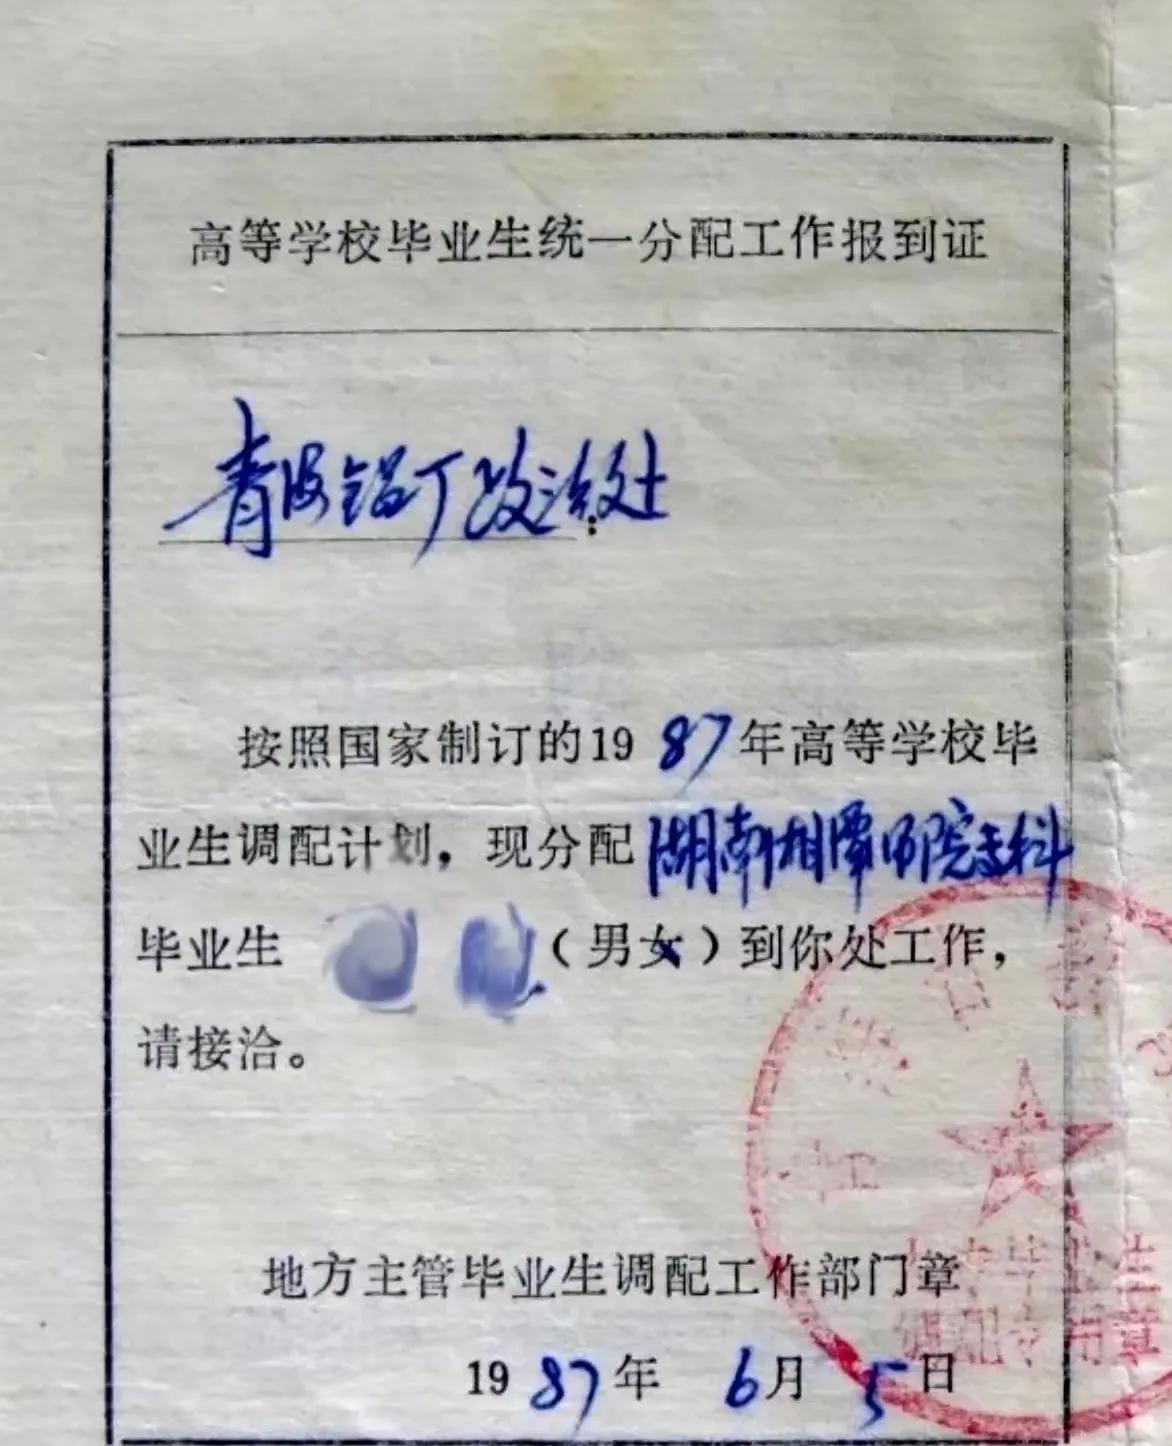 高等学校毕业生统一分配工作报到证
青海铝厂政治处:
按照国家制订的1987年高等学校毕
业生调配计划，现分配湖南湘潭师院专科
毕业生（男女）到你处工作，
请接洽。
地方主管毕业生调配工作部门章
毕业生
调配专用章
1987年6月5日